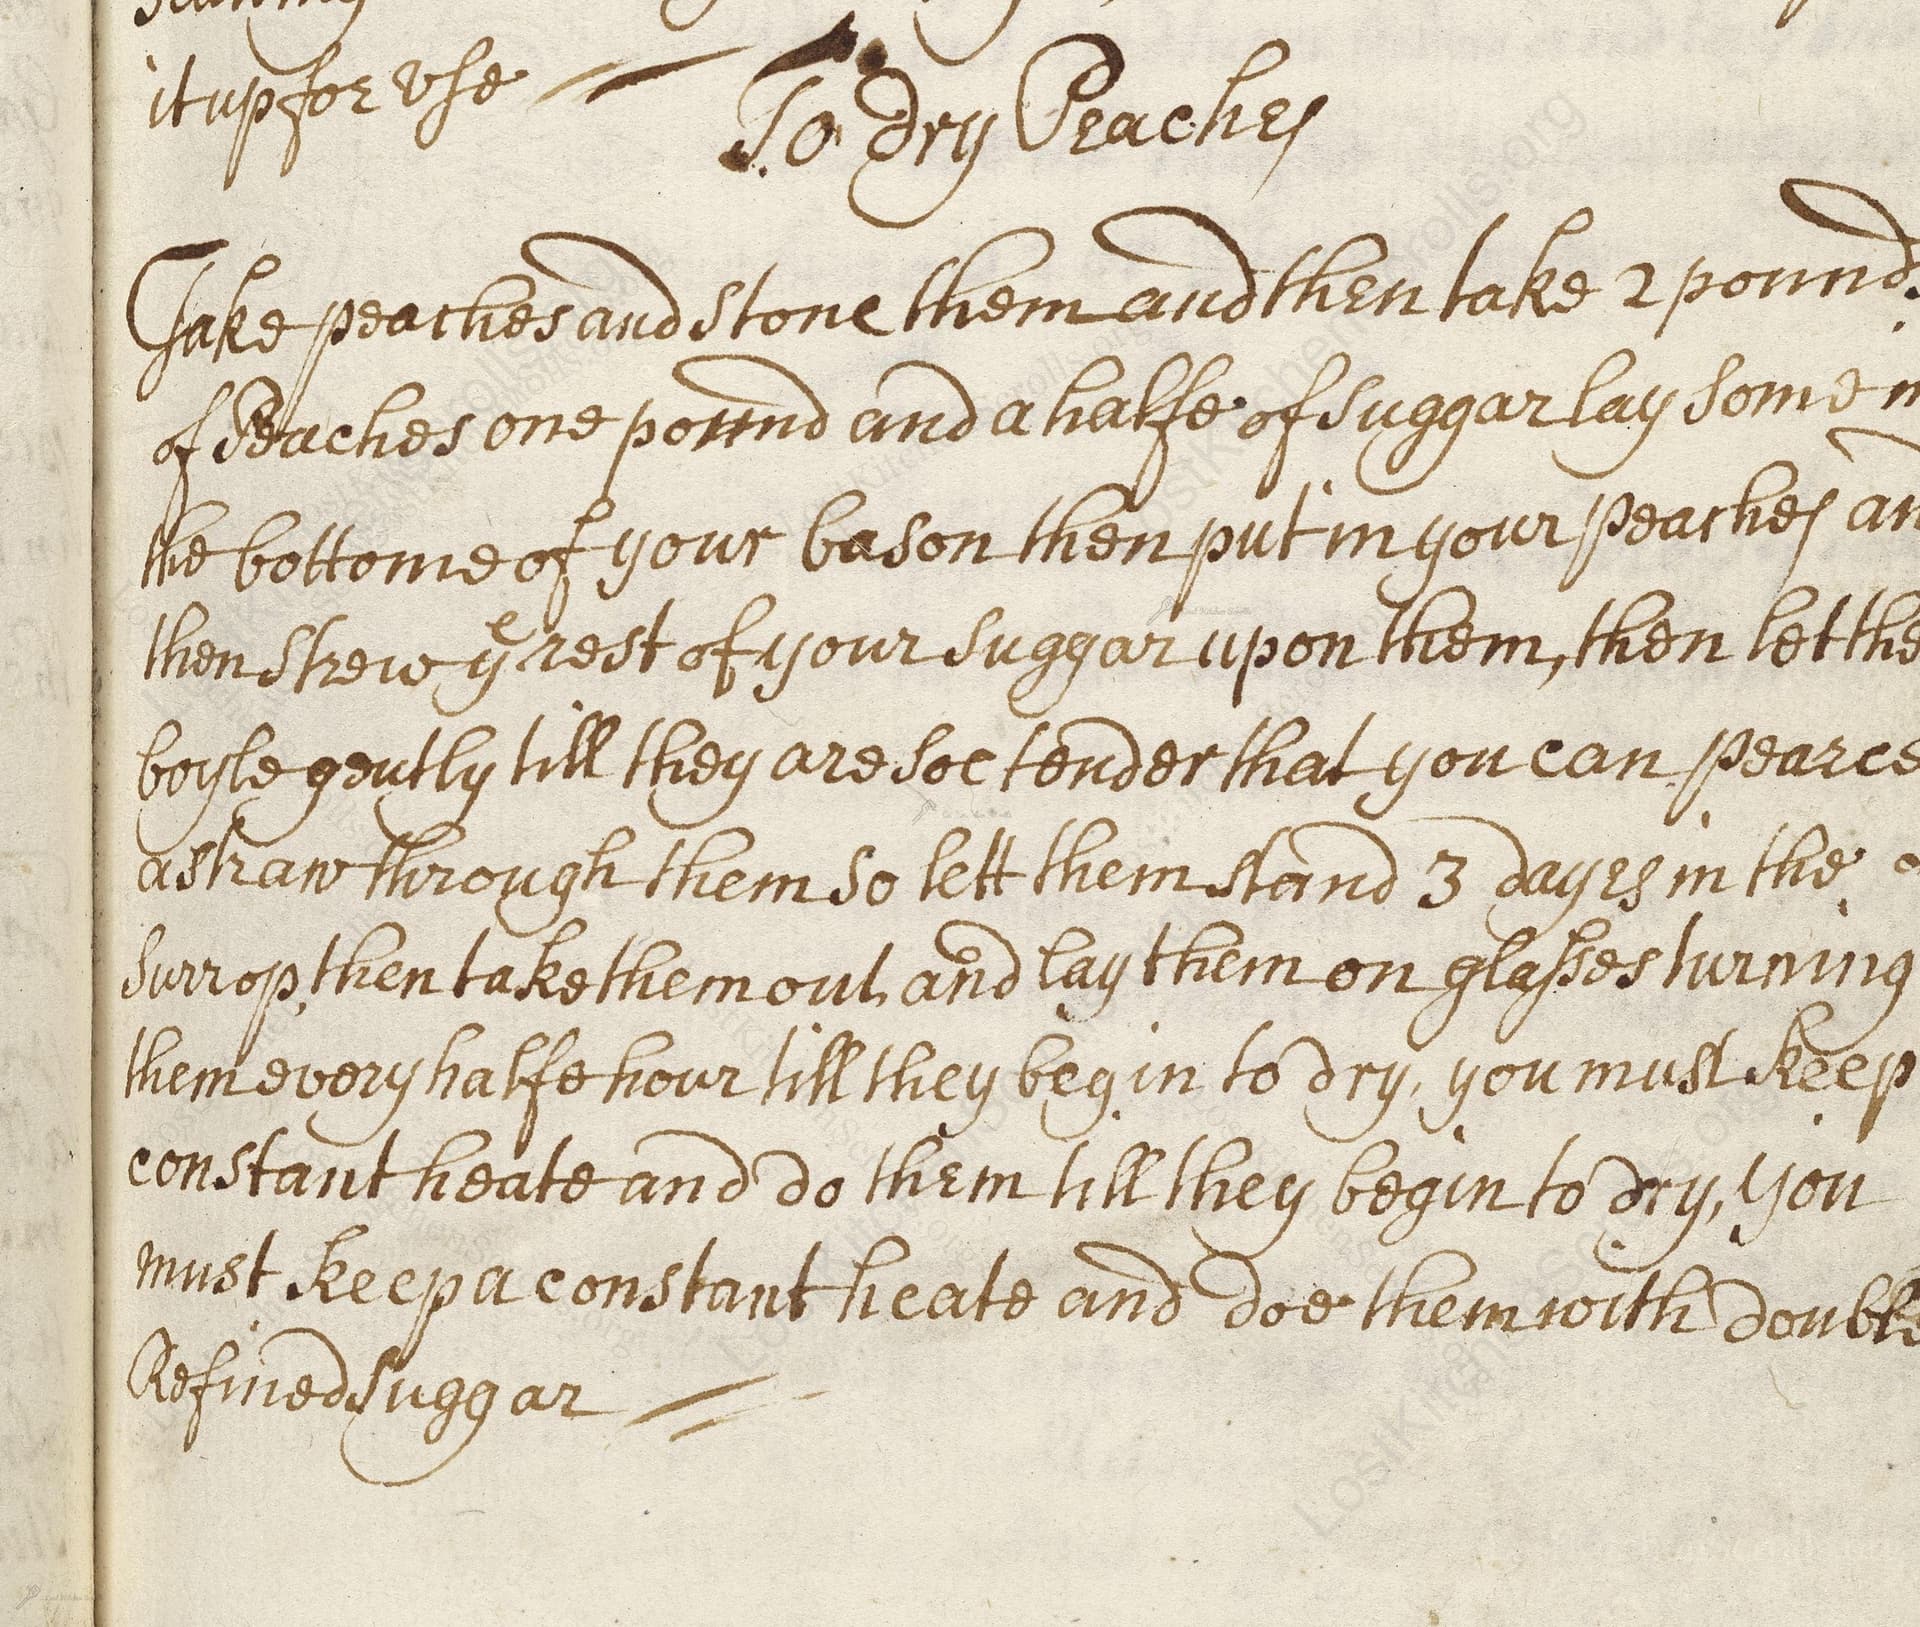 it up for vse
To dry Peaches
Take peaches and stone them and then take 2 pound
of Peaches one pound and a halfe of suggar lay some
the bottome of your bason then put in your peaches an
then strew yᵉ rest of your suggar upon them, then let the
boyle gently till they are soe tender that you can pearce
a straw through them so lett them stand 3 dayes in the
surrop, then take them out and lay them on glasses turning
them every halfe hour till they begin to dry, you must keep
constant heate and do them till they begin to dry, you
must keep a constant heate and doe them with double
Refined suggar